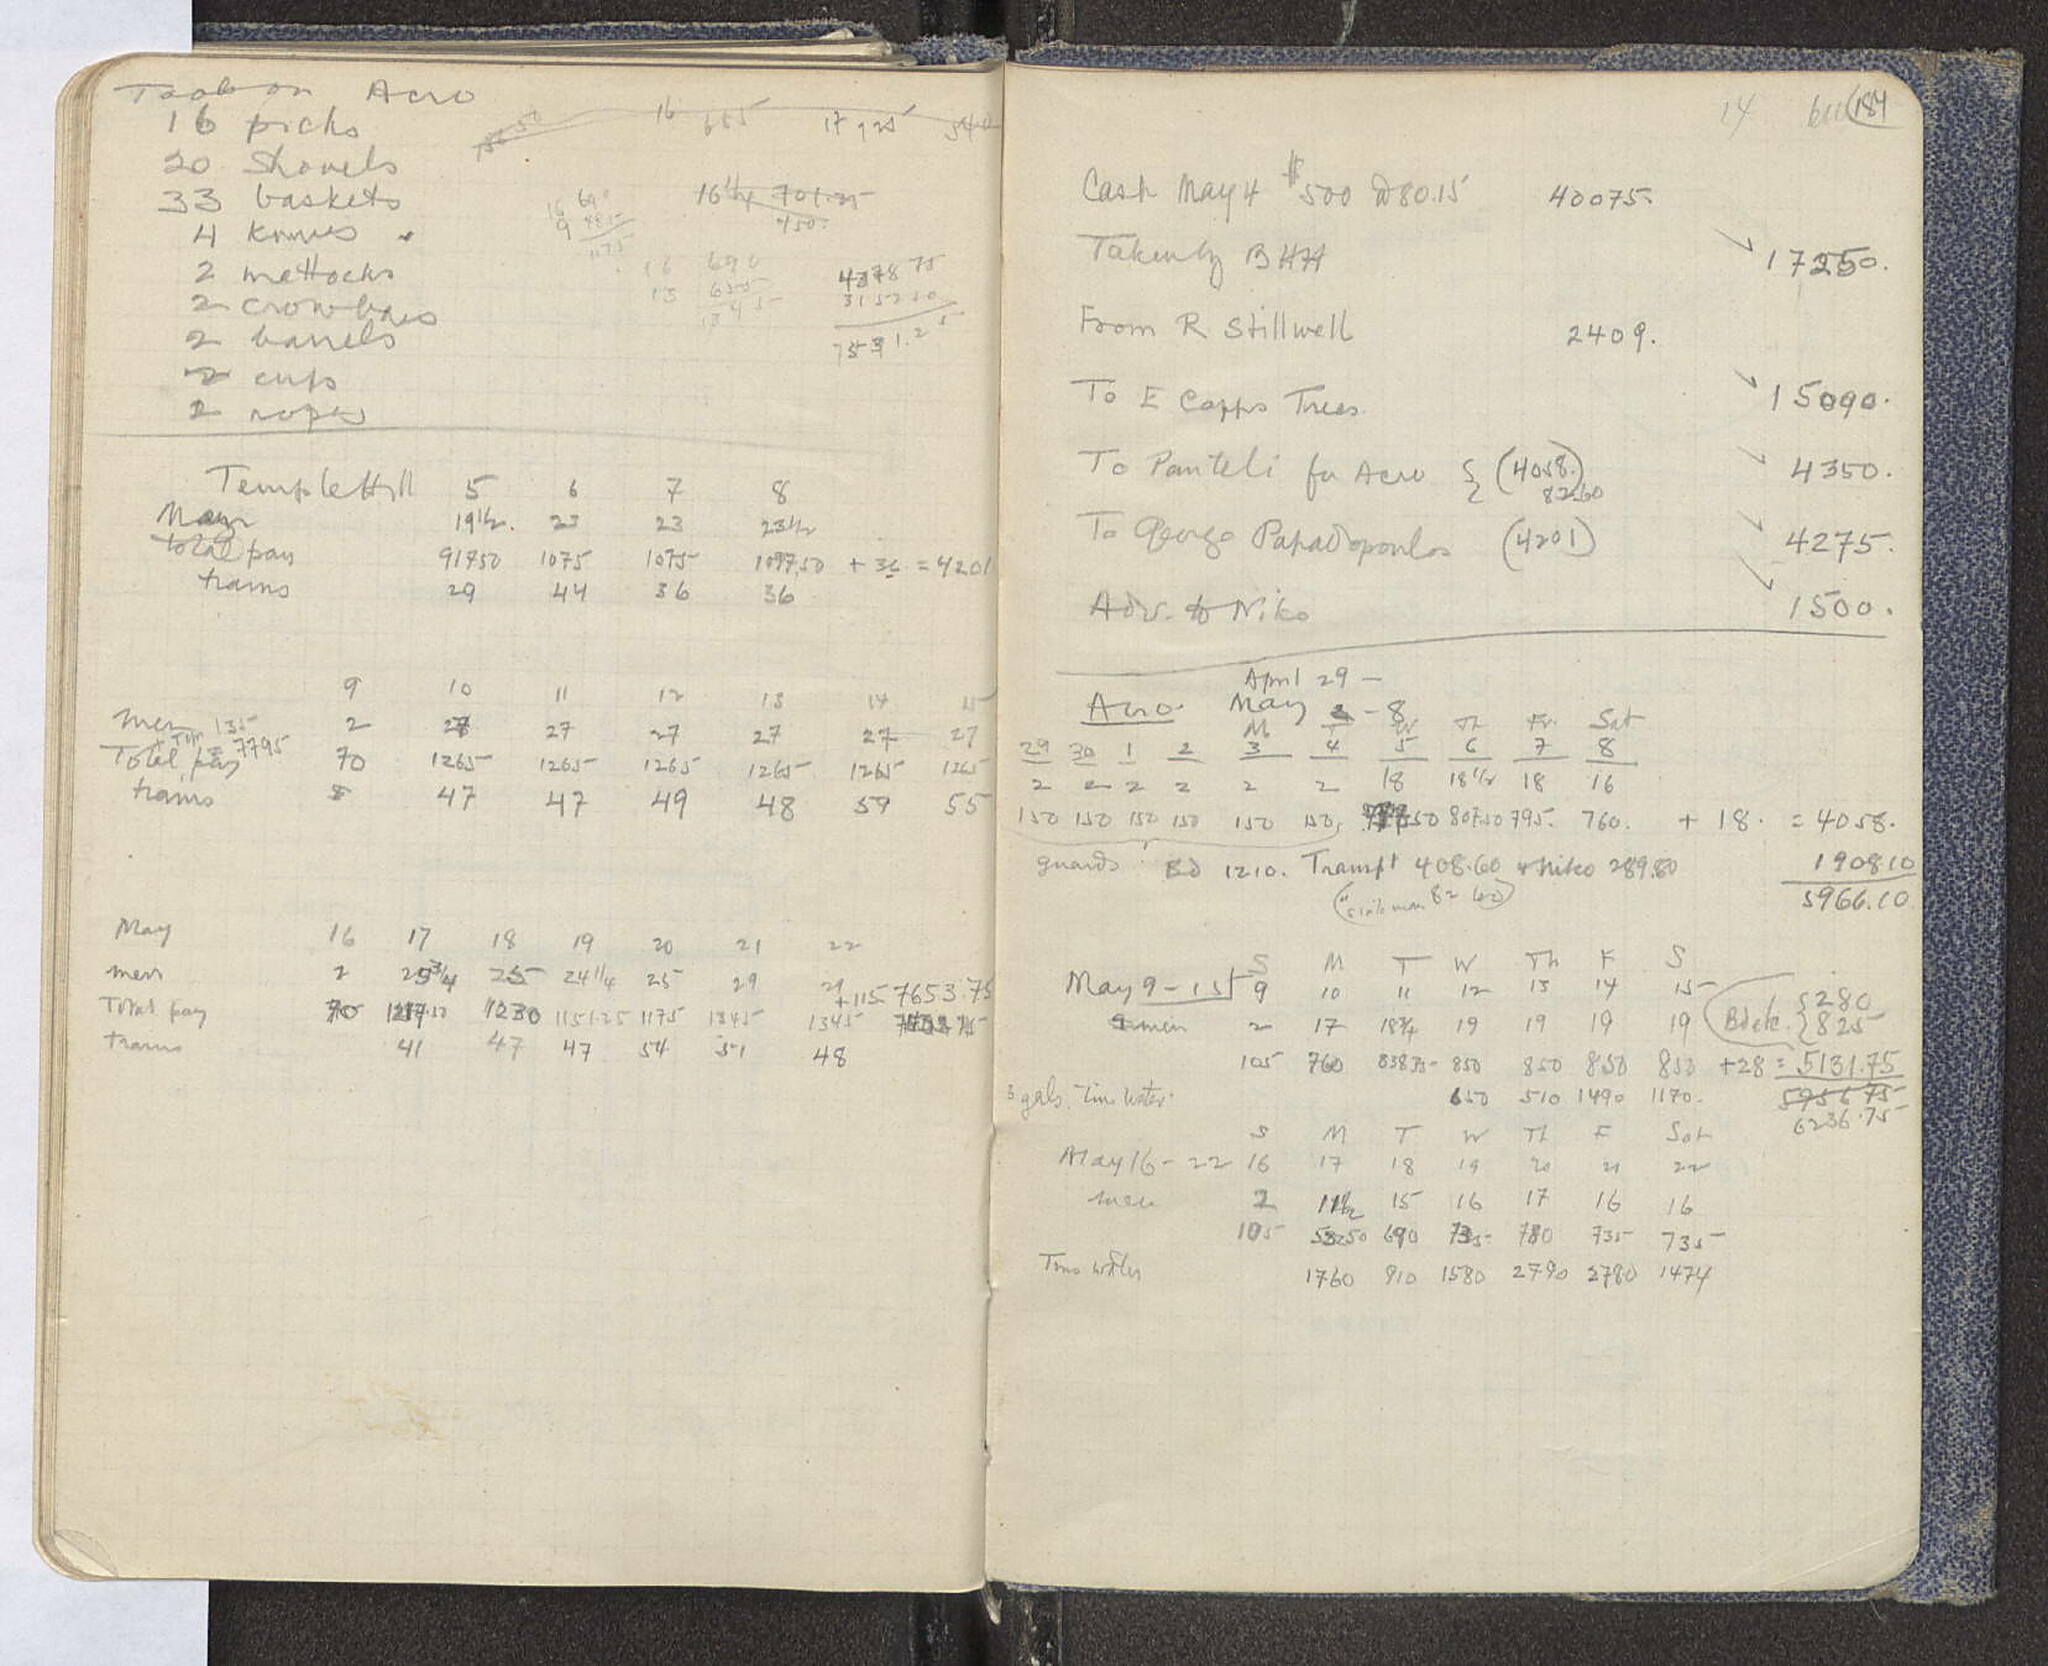 Tools on Acro
16 picks
20 Shovels
33 baskets
4 knives
2 mattocks
2 crowbars
2 barrels
2 cups
2 ropes
16 655 17 725 540
16 1/4 701.25
450
16 690
9 485
1175
16 690
15 655
1345
4378 75
3152 50
7531.25
Temple Hill 5 6 7 8
May 19 1/2. 23 23 23 1/2
total pay 917 50 1075 1075 1097.50 + 36 = 4201
trams 29 44 36 36
9 10 11 12 13 14 15
Men 2 27 27 27 27 27 27
135
= 7795
Total pay 70 1265 1265 1265 1265 1265 1265
trams 47 47 49 48 59 55
May 16 17 18 19 20 21 22
men 2 25 3/4 25 24 1/4 25 29 29
+115 7653.75
Total pay 70 1217.50 1230 1151.25 1175 1345 1345
trams 41 47 47 54 51 48
14 184
Cash May 4 $500 @ 80.15 40075.
Taken by BHH 17250.
From R Stillwell 2409.
To E Capps Trees. 15090.
To Panteli for Acro { (4058.) 4350.
82.60
To George Papadopoulos (4201) 4275.
Adv. to Niko 1500.
April 29 –
Acro. May 2 – 8
M T W Th Fr. Sat
29 30 1 2 3 4 5 6 7 8
2 2 2 2 2 2 18 18 1/2 18 16
150 150 150 150 150 150, 807.50 795. 760. + 18. = 4058.
guards Bd 1210. Transpt 408.60 + Niko 289.50 1908.10
82 60 5966.10
S M T W Th F S
May 9 – 15 9 10 11 12 13 14 15
men 2 17 18 3/4 19 19 19 19
Bd etc. { 280
825
105 760 838.75 850 850 850 850 +28 = 5131.75
3 gals. Time Water. 650 510 1490 1170. 5956 75
6236.75
S M T W Th F Sat
May 16 – 22 16 17 18 19 20 21 22
men 2 11 1/2 15 16 17 16 16
105 532 50 690 735 780 735 735
Time Water 1760 910 1580 2790 2780 1474